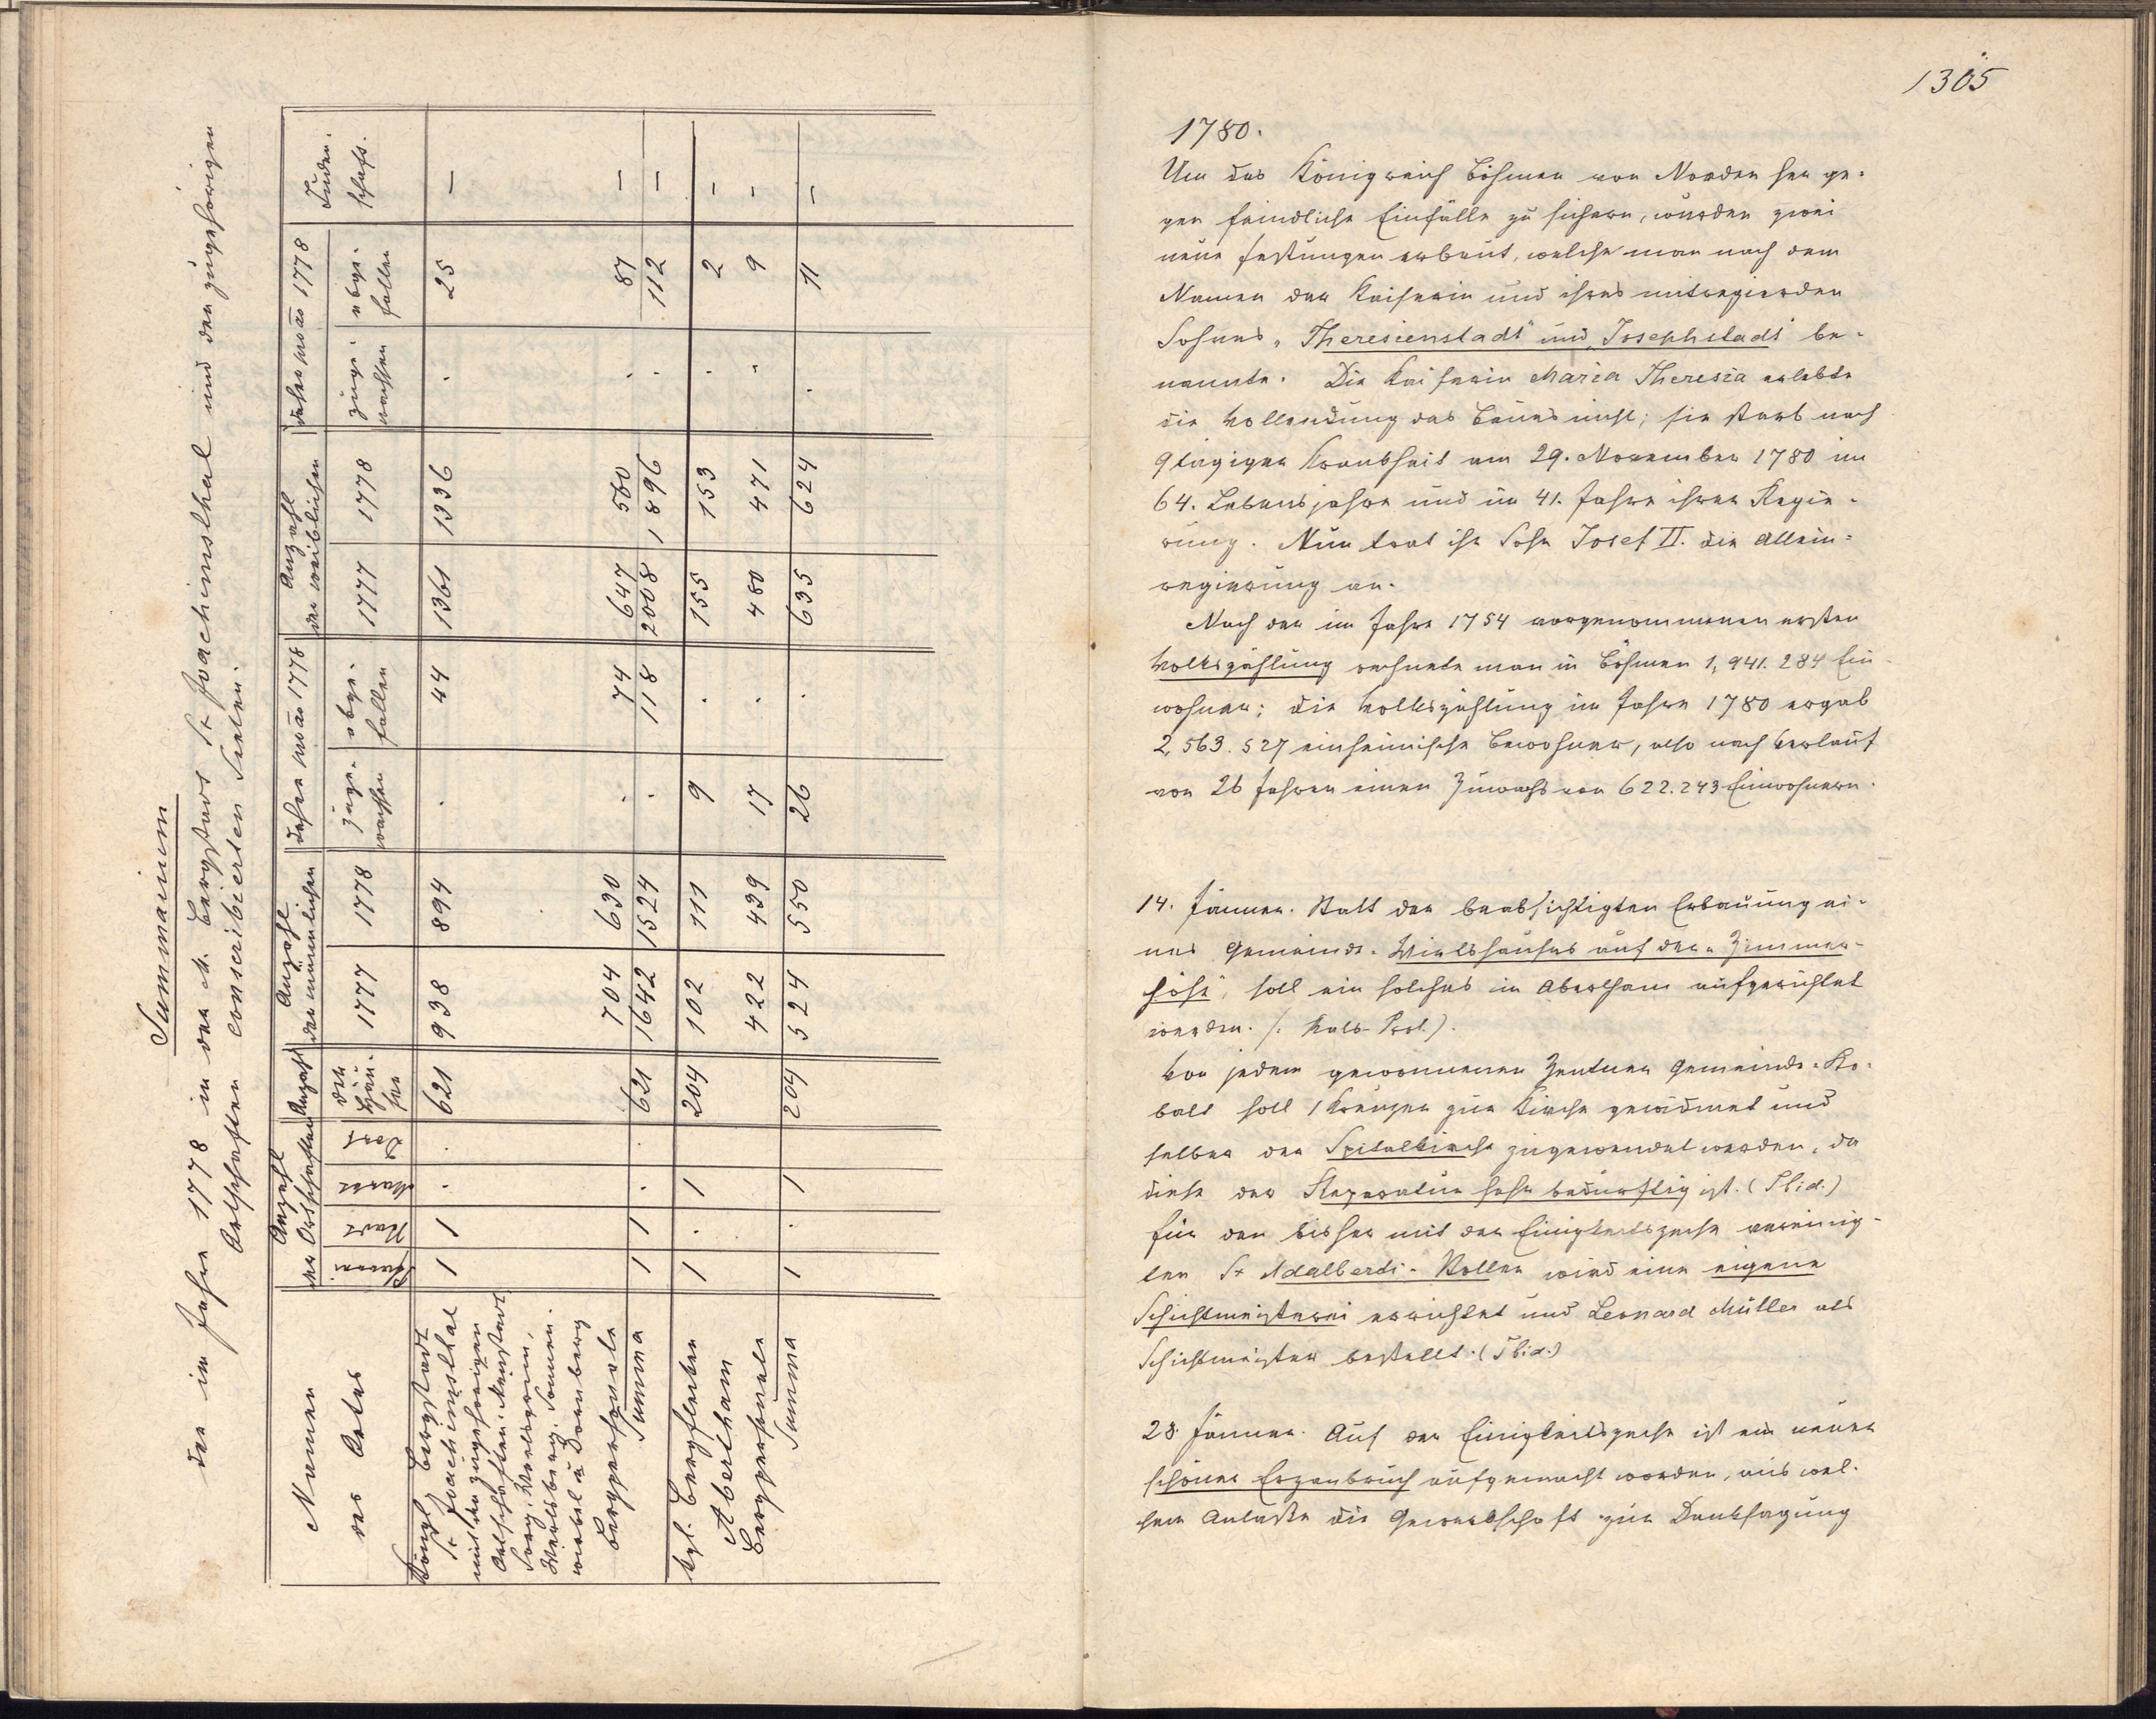 Summarium
der im Jahre 1778 in der k. Bergstadt St Joachimsthal und den zugehörigen
Ortschaften conscribierten Seelen.
Namen des Ortes | Anzahl der Ortschaften | Anzahl der Häuser | Anzahl der männlichen | daher pro ao 1778 | Anzahl der weiblichen | daher pro ao 1778 | Judenschaft.
Stadt | Markt | Dorf | 1777 | 1778 | zugewachsen | abgefallen | 1777 | 1778 | zugewachsen | abgefallen
Königl. Bergstadt
St Joachimsthal
mit den zugehörigen
Ortschaften: Neustadt
Sorg,
Werlsberg, Sonnenwirbel u Dürnberg | 1 | 1 | . | . | 621 | 938 | 894 | . | 44 | 1361 | 1336 | . | 25 | –
Bergpersonale | 704 | 630 | . | 74 | 647 | 560 | . | 87 | –
Summa | 1 | 1 | . | . | 621 | 1642 | 1524 | . | 118 | 2008 | 1896 | . | 112 | –
kgl. Bergflecken
Abertham | 1 | . | 1 | 204 | 102 | 111 | 9 | . | 155 | 153 | . | 2 | –
Bergpersonale | 422 | 439 | 17 | . | 480 | 471 | . | 9 | –
Summa | 1 | . | 1 | 204 | 524 | 550 | 26 | . | 635 | 624 | . | 11 | –
1305
1780.
Um das Königreich Böhmen von Norden her ge-
gen feindliche Einfälle zu sichern, wurden zwei
neue Festungen erbaut, welche man nach dem
Namen der Kaiserin und ihres mitregierden
Sohnes „Theresienstadt" und „Josephstadt" be-
nannte. Die Kaiserin Maria Theresia erlebte
die Vollendung des Baues nicht; sie starb nach
9tägiger Krankheit am 29. November 1780 im
64. Lebensjahre und im 41. Jahre ihrer Regie-
rung. Nun trat ihr Sohn Josef II. die Allein-
regierung an.
Nach der im Jahre 1754 vorgenommenen ersten
Volkszählung rechnete man in Böhmen 1,941.284 Ein-
wohner; die Volkszählung im Jahre 1780 ergab
2,563.527 einheimische Bewohner, also nach Verlauf
von 26 Jahren einen Zuwachs von 622.243 Einwohnern.
14. Jänner. Statt der beabsichtigten Erbauung ei-
nes Gemeinde-Wirtshauses auf der „Zimmer-
höhe", soll ein solches in Abertham aufgerichtet
werden. /: Rats-Prot.).
Von jedem gewonnenen Zentner Gemeinde-Ko-
balt soll 1 Kreuzer zur Kirche gewidmet und
selber der Spitalkirche zugewendet werden, da
diese der Reparatur sehr bedürftig ist. (Ibid.)
Für den bisher mit der Einigkeitszeche vereinig-
ten St Adalberti-Stollen wird eine eigene
Schichtmeisterei errichtet und Leonard Müller als
Schichtmeister bestellt. (Ibid.)
28. Jänner. Auf der Einigkeitszeche ist ein neuer
schöner Erzanbruch aufgemacht worden, aus wel-
chem Anlaße die Gewerkschaft zur Danksagung